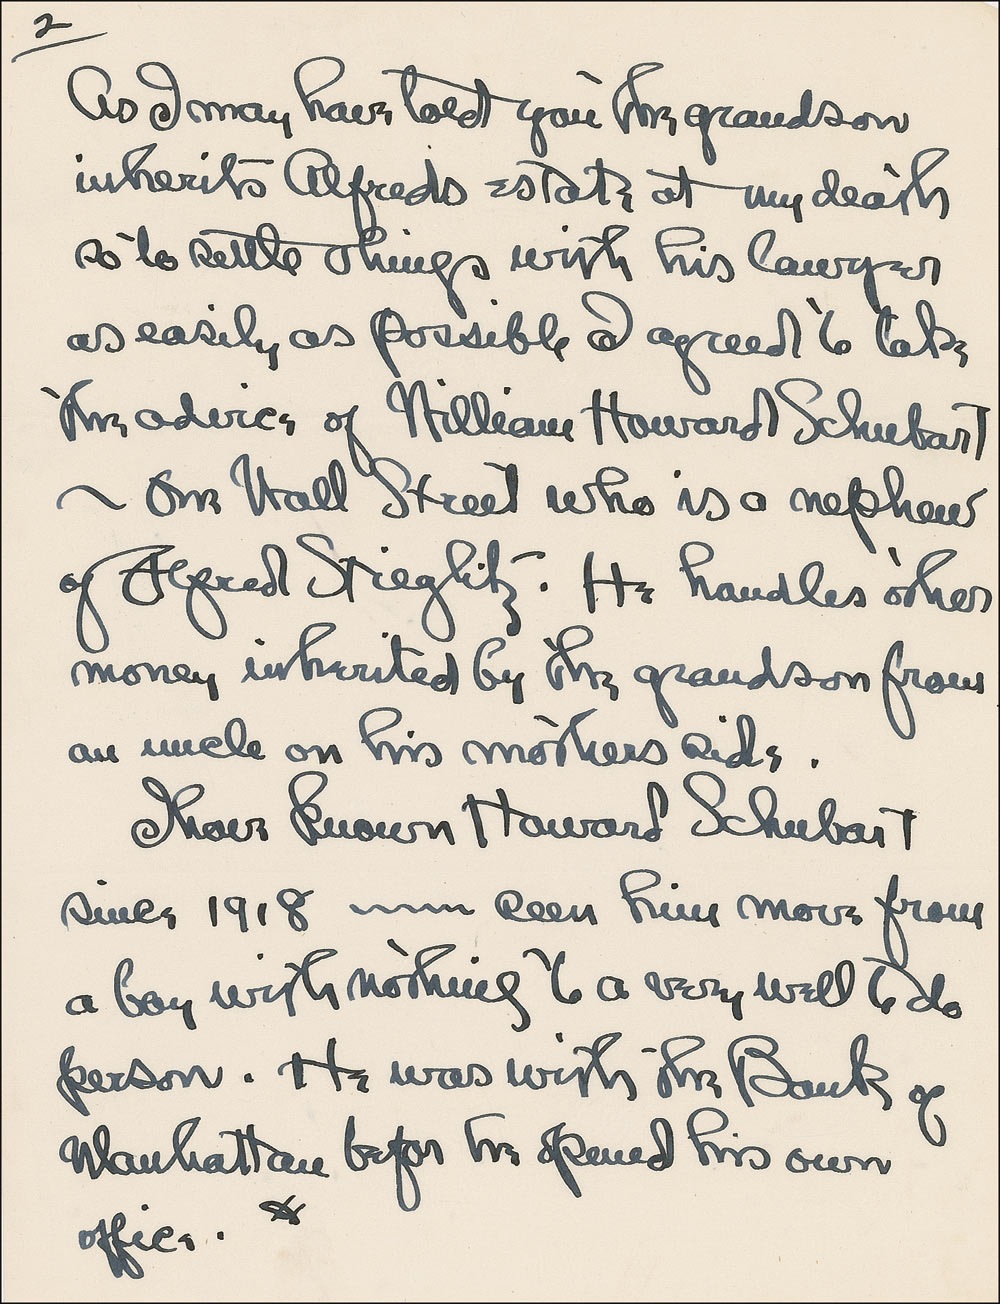 2
As I may have told you the grandson
inherits Alfreds estate at my death
so to settle things with his lawyer
as easily as possible I agreed to take
the advice of William Howard Schubart
~ One Wall Street who is a nephew
of Alfred Stieglitz. He handles other
money inherited by the grandson from
an uncle on his mothers side.
I have known Howard Schubart
since 1918 ~~~ seen him move from
a boy with nothing to a very well to do
person. He was with the Bank of
Manhattan befor he opened his own
office.